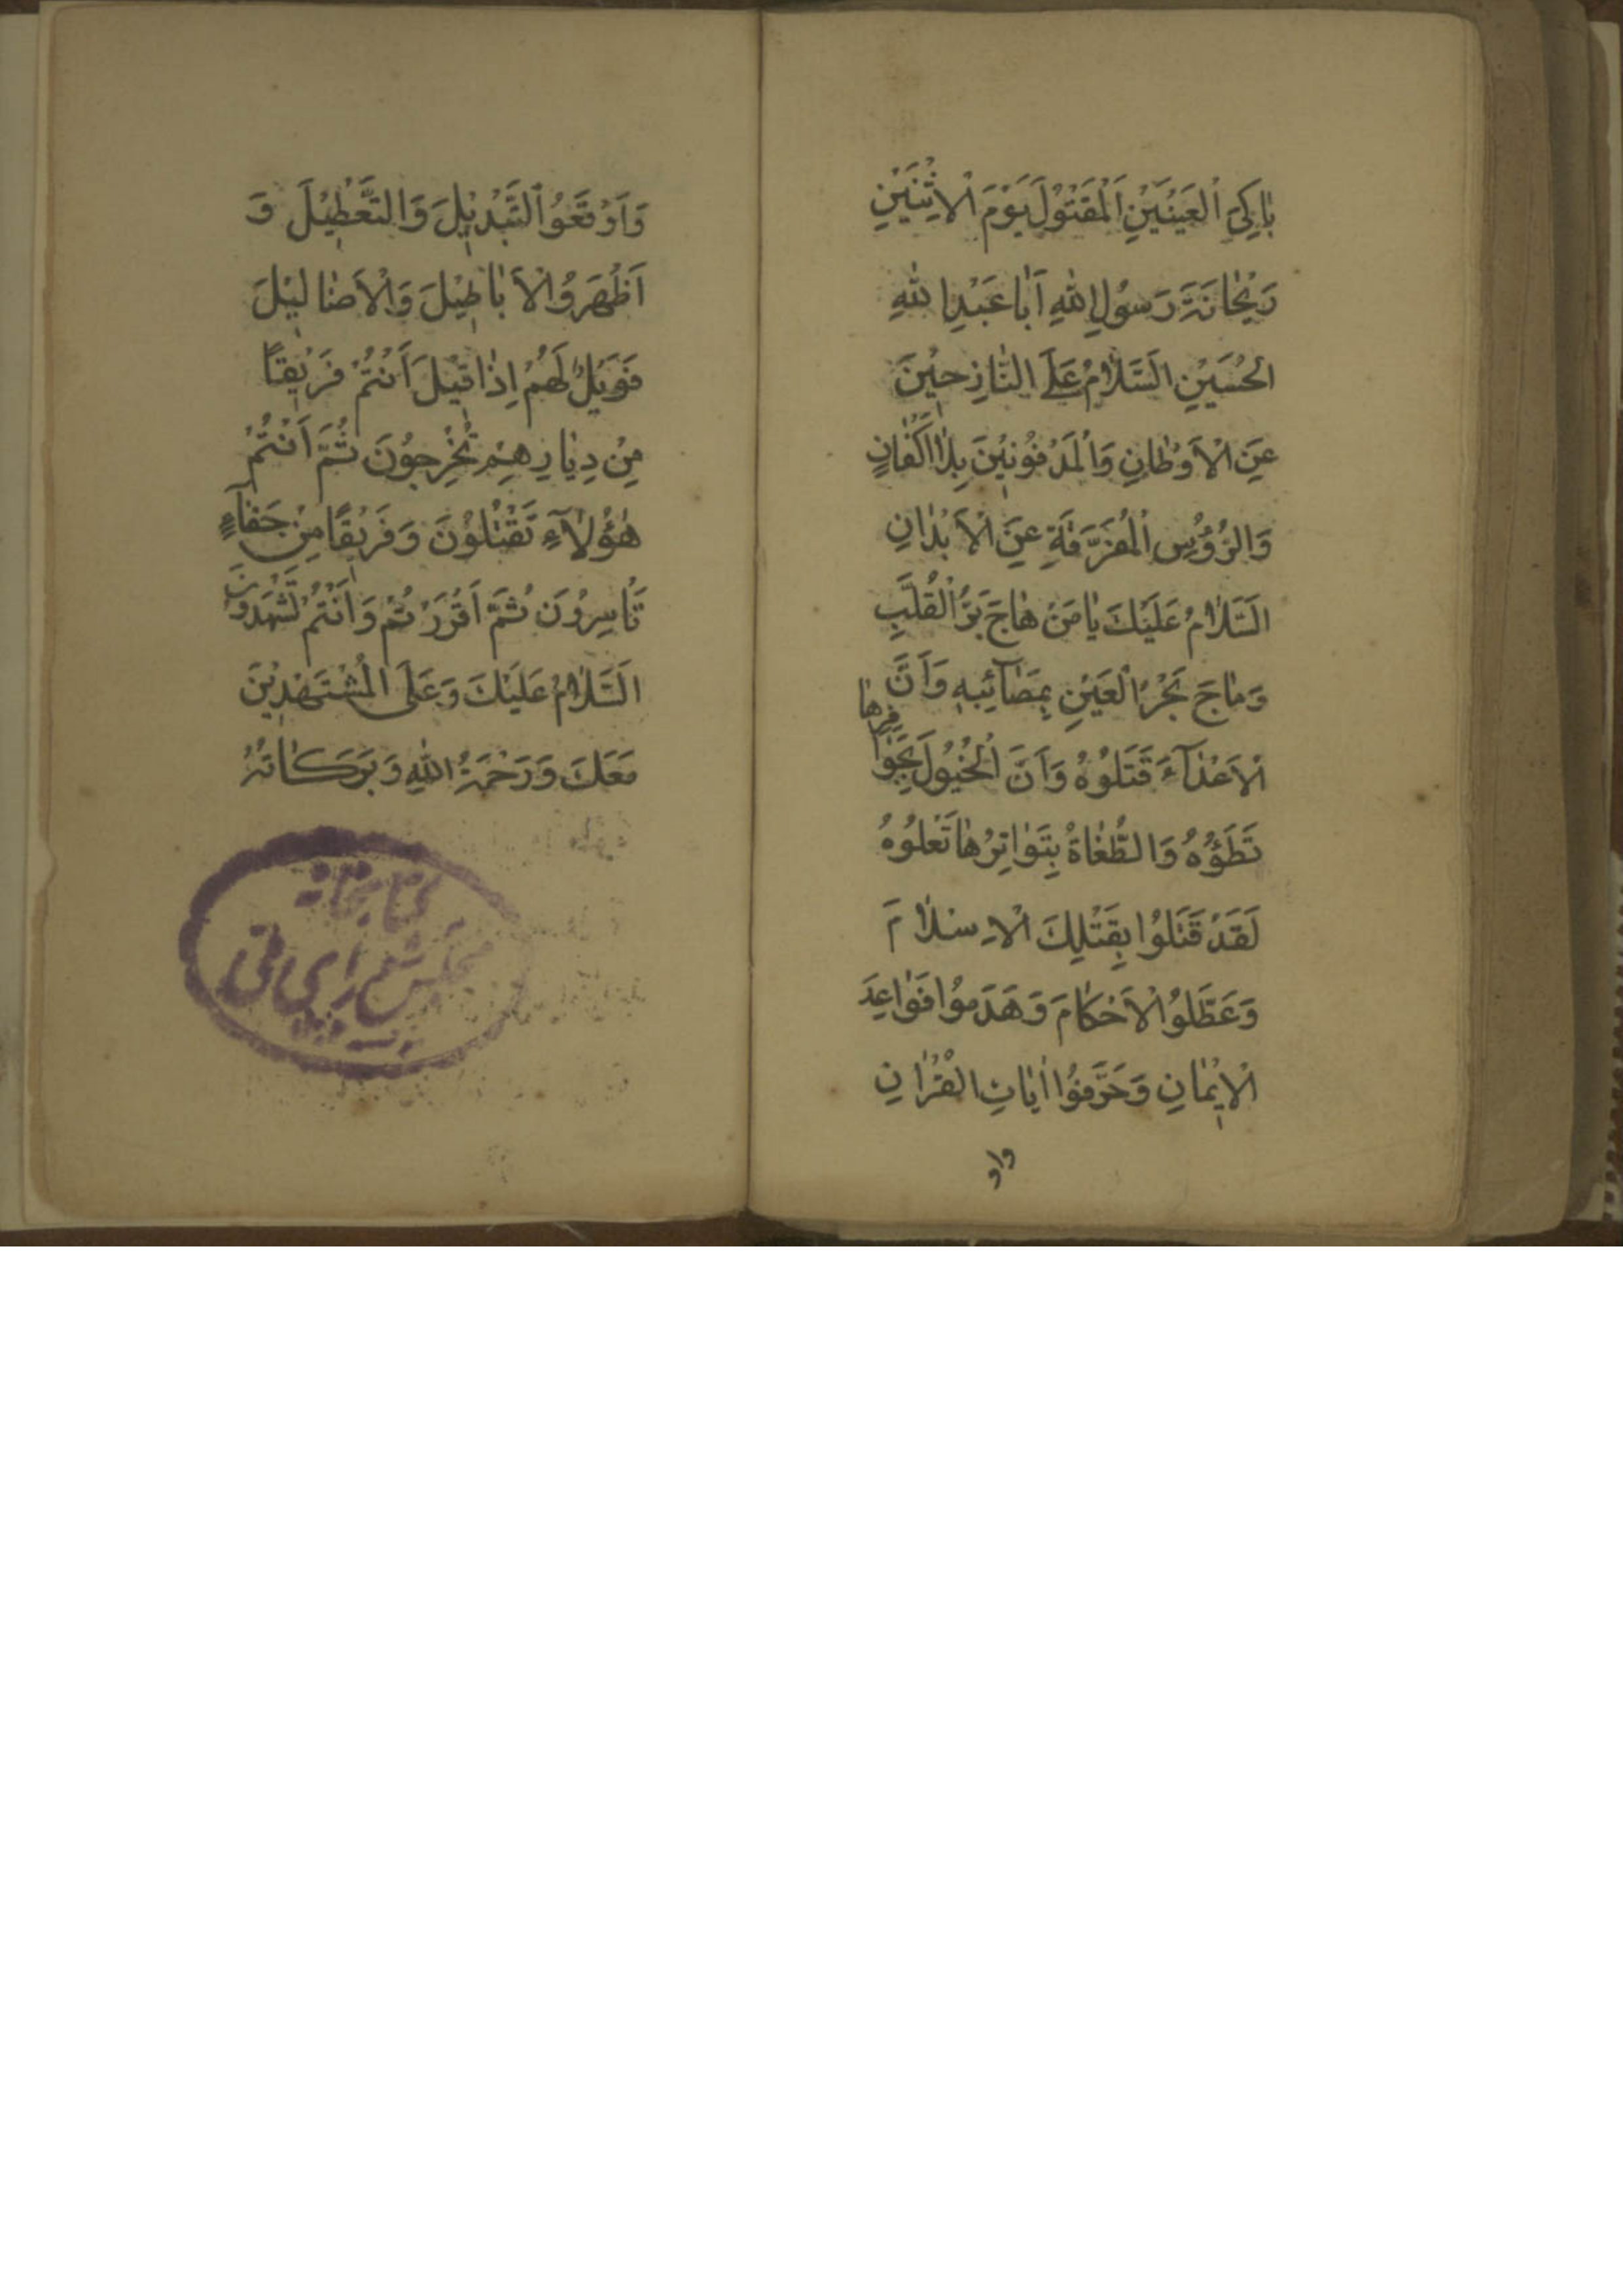 بٰاكِيَ الْعَيْنَيْنِ اَلْمَقْتُولَ يَوْمَ الْاِثْنَيْنِ
رَيْحٰانَةَ رَسُولِ اللهِ اَبٰا عَبْدِ اللهِ
الْحُسَيْنِ اَلسَّلٰامُ عَلَى النّٰازِحِيْنَ
عَنِ الْاَوْطٰانِ وَالْمَدْفُونِيْنَ بِلٰا اَكْفٰانٍ
وَالرُّؤُسِ الْمُفَرَّقَةِ عَنِ الْاَبْدٰانِ
اَلسَّلٰامُ عَلَيْكَ يٰا مَنْ هٰاجَ بَرُّ الْقَلْبِ
وَمٰاجَ بَحْرُ الْعَيْنِ بِمَصٰآئِبِهِ وَاَنَّ
الْاَعْدٰآءَ قَتَلُوْهُ وَاَنَّ الْخُيُولَ بِحَوٰافِرِهٰا
تَطَؤُهُ وَالطُّغٰاةُ بِبَوٰاتِرِهٰا تَعْلُوْهُ
لَقَدْ قَتَلُوْا بِقَتْلِكَ الْاِسْلٰامَ
وَعَطَّلُوا الْاَحْكٰامَ وَهَدَمُوْا قَوٰاعِدَ
الْاِيْمٰانِ وَحَرَّفُوْا اٰيٰاتِ الْقُرْاٰنِ
وَاَوْقَعُوا التَّبْدِيْلَ وَالتَّعْطِيْلَ وَ
اَظْهَرُوا الْاَبٰاطِيْلَ وَالْاَضٰالِيْلَ
فَوَيْلٌ لَهُمْ اِذٰا قِيْلَ اَنْتُمْ فَرِيْقًا
مِنْ دِيٰارِهِمْ تُخْرِجُونَ ثُمَّ اَنْتُمْ
هٰؤُلٰآءِ تَقْتُلُوْنَ وَفَرِيْقًا مِنْ جَفٰآءٍ
تَأْسِرُوْنَ ثُمَّ اَقْرَرْتُمْ وَاَنْتُمْ تَشْهَدُوْنَ
اَلسَّلٰامُ عَلَيْكَ وَعَلَى الْمُسْتَشْهَدِيْنَ
مَعَكَ وَرَحْمَةُ اللهِ وَبَرَكٰاتُهُ
كتابخانه
مجلس شورای ملی